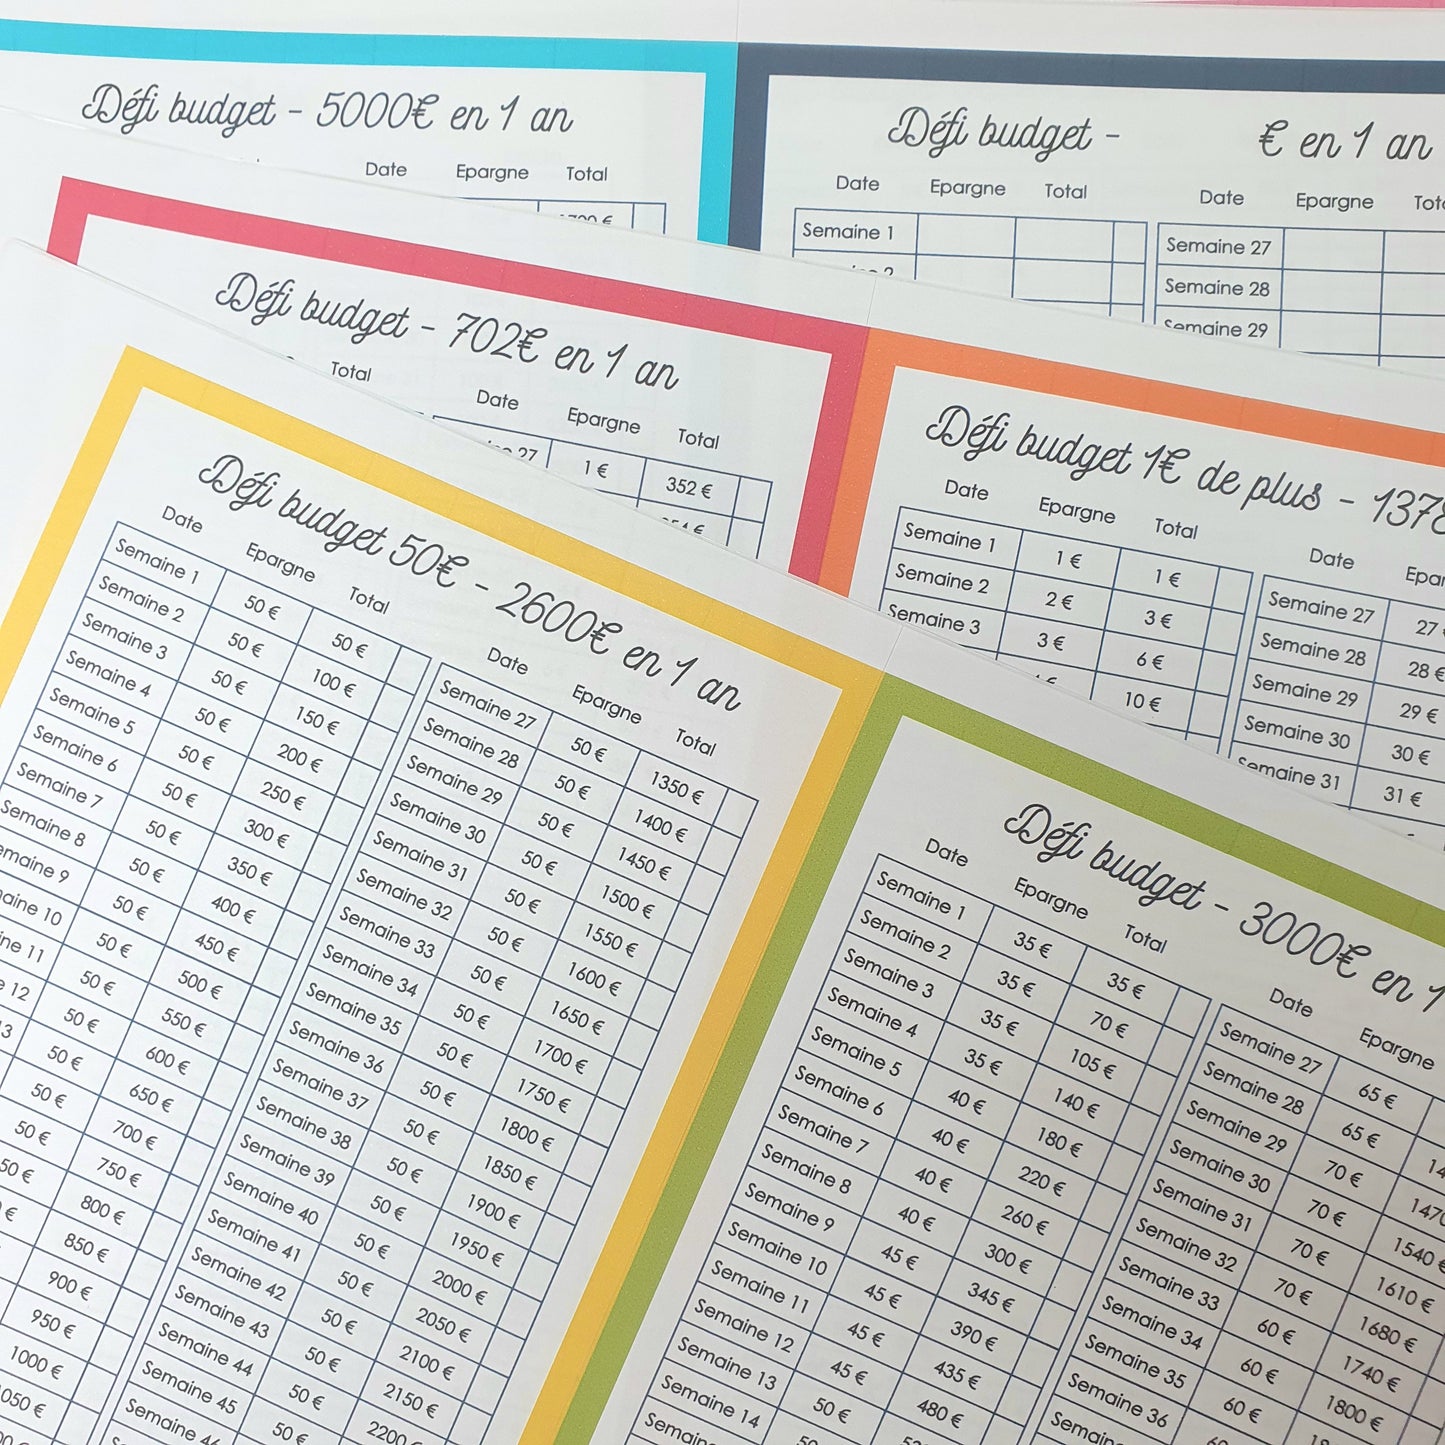 Défi budget - 5000€ en 1 an
Date Epargne Total
Défi budget - € en 1 an
Date Epargne Total
Semaine 1
Date Epargne
Semaine 27
Semaine 28
Semaine 29
Défi budget - 702€ en 1 an
Total
Date Epargne Total
27 1 € 352 €
Défi budget 1€ de plus - 1378
Date Epargne Total
Semaine 1 1 € 1 €
Semaine 2 2 € 3 €
Semaine 3 3 € 6 €
10 €
Date
Semaine 27 27
Semaine 28 28 €
Semaine 29 29 €
Semaine 30 30 €
Semaine 31 31 €
Défi budget 50€ - 2600€ en 1 an
Date Epargne Total
Semaine 1 50 € 50 €
Semaine 2 50 € 100 €
Semaine 3 50 € 150 €
Semaine 4 50 € 200 €
Semaine 5 50 € 250 €
Semaine 6 50 € 300 €
Semaine 7 50 € 350 €
Semaine 8 50 € 400 €
Semaine 9 50 € 450 €
10 50 € 500 €
11 50 € 550 €
12 50 € 600 €
13 50 € 650 €
50 € 700 €
50 € 750 €
50 € 800 €
850 €
900 €
950 €
1000 €
1050 €
Date Epargne Total
Semaine 27 50 € 1350 €
Semaine 28 50 € 1400 €
Semaine 29 50 € 1450 €
Semaine 30 50 € 1500 €
Semaine 31 50 € 1550 €
Semaine 32 50 € 1600 €
Semaine 33 50 € 1650 €
Semaine 34 50 € 1700 €
Semaine 35 50 € 1750 €
Semaine 36 50 € 1800 €
Semaine 37 50 € 1850 €
Semaine 38 50 € 1900 €
Semaine 39 50 € 1950 €
Semaine 40 50 € 2000 €
Semaine 41 50 € 2050 €
Semaine 42 50 € 2100 €
Semaine 43 50 € 2150 €
Semaine 44 50 € 2200
Semaine 45 50 €
Semaine
Défi budget - 3000€ en 1
Date Epargne Total
Semaine 1 35 € 35 €
Semaine 2 35 € 70 €
Semaine 3 35 € 105 €
Semaine 4 35 € 140 €
Semaine 5 40 € 180 €
Semaine 6 40 € 220 €
Semaine 7 40 € 260 €
Semaine 8 40 € 300 €
Semaine 9 45 € 345 €
Semaine 10 45 € 390 €
Semaine 11 45 € 435 €
Semaine 12 45 € 480 €
Semaine 13 50 €
Semaine 14 50
Semaine
Date Epargne
Semaine 27 65 €
Semaine 28 65 €
Semaine 29 70 € 1470
Semaine 30 70 € 1540 €
Semaine 31 70 € 1610 €
Semaine 32 70 € 1680 €
Semaine 33 60 € 1740 €
Semaine 34 60 € 1800 €
Semaine 35 60 €
Semaine 36 60
Semaine